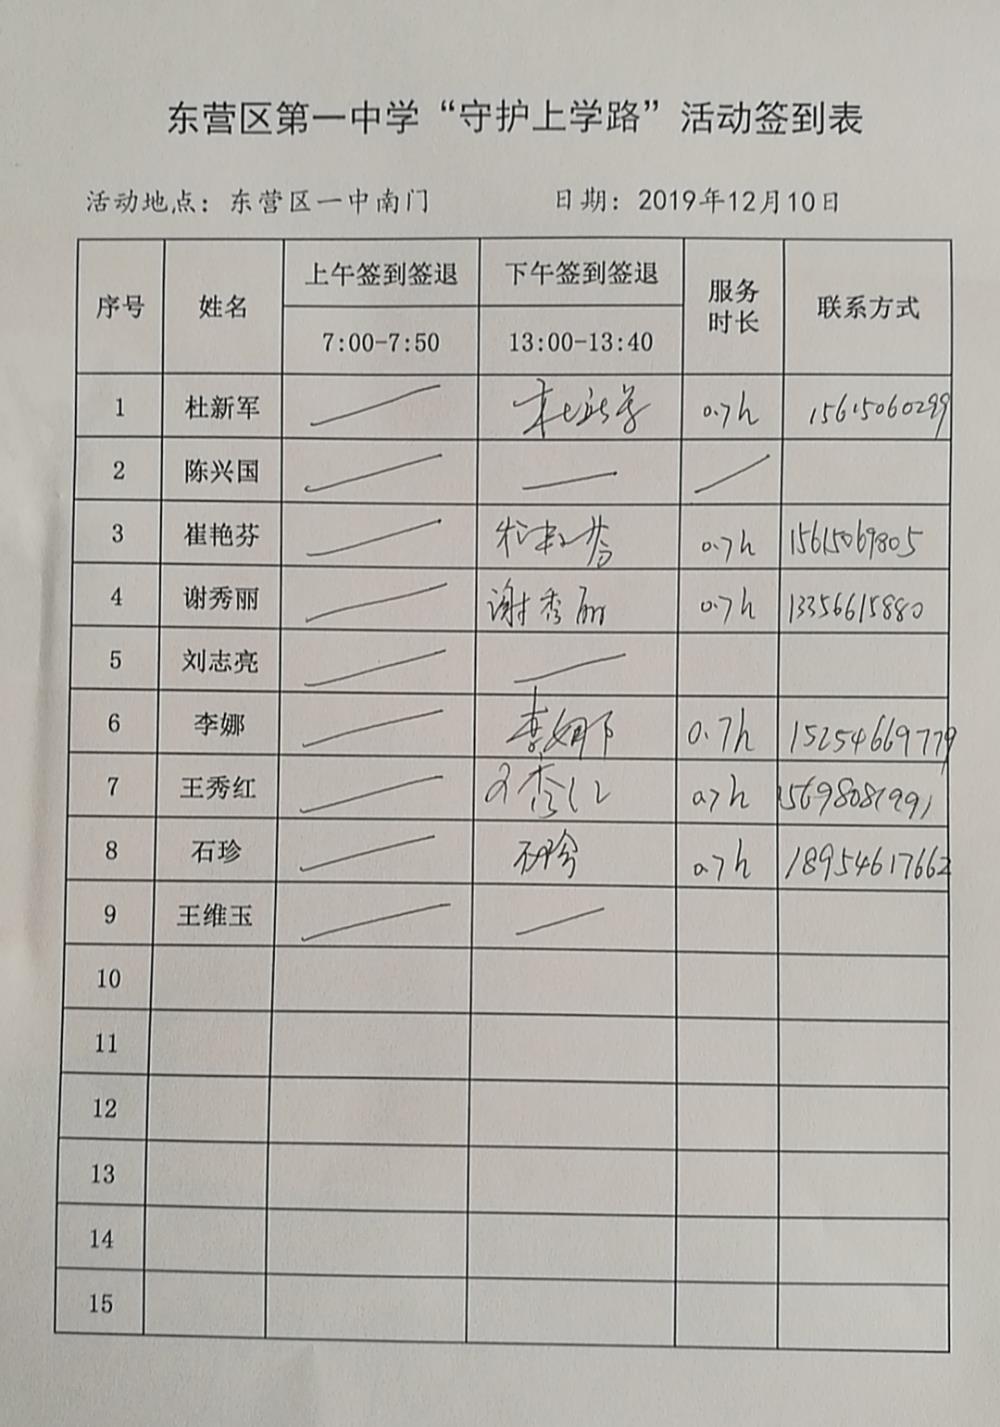 东营区第一中学“守护上学路”活动签到表
活动地点：东营区一中南门 日期：2019年12月10日
序号 姓名 上午签到签退 下午签到签退 服务时长 联系方式
7:00-7:50 13:00-13:40
1 杜新军 0.7h 15615060299
2 陈兴国
3 崔艳芬 0.7h 15615069805
4 谢秀丽 谢秀丽 0.7h 13356615880
5 刘志亮
6 李娜 李娜 0.7h 15254669779
7 王秀红 王秀红 0.7h 15698081991
8 石珍 石珍 0.7h 18954617662
9 王维玉
10
11
12
13
14
15